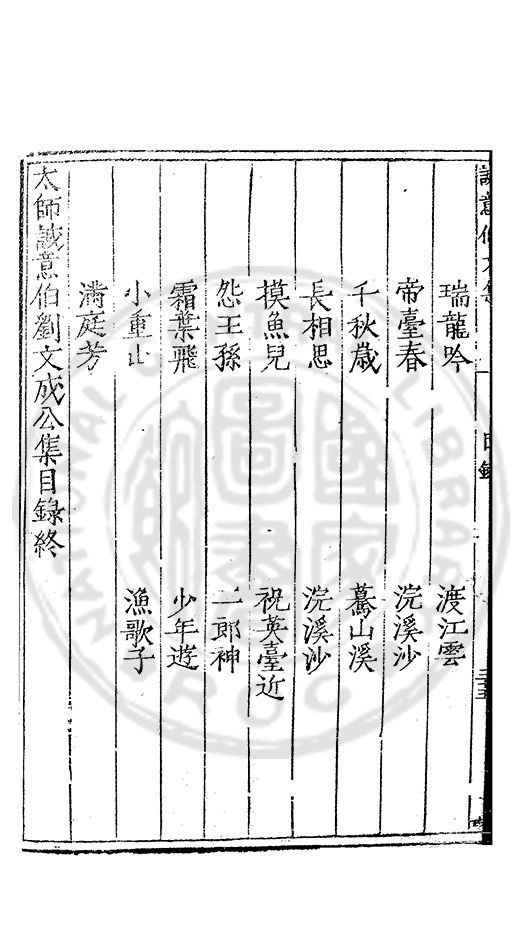 瑞龍吟 渡江雲
帝臺春 浣溪沙
千秋歳 驀山溪
長相思 浣溪沙
摸魚兒 祝英臺近
怨王孫 二郎神
霜葉飛 少年遊
小重山 漁歌子
滿庭芳
太師誠意伯劉文成公集目錄終